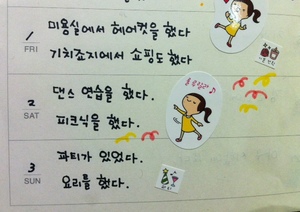 1
FRI
미용실에서 헤어컷을 했다
기치죠지에서 쇼핑도 했다
2
SAT
댄스 연습을 했다.
피크닉을 했다.
3
SUN
파티가 있었다.
요리를 했다.